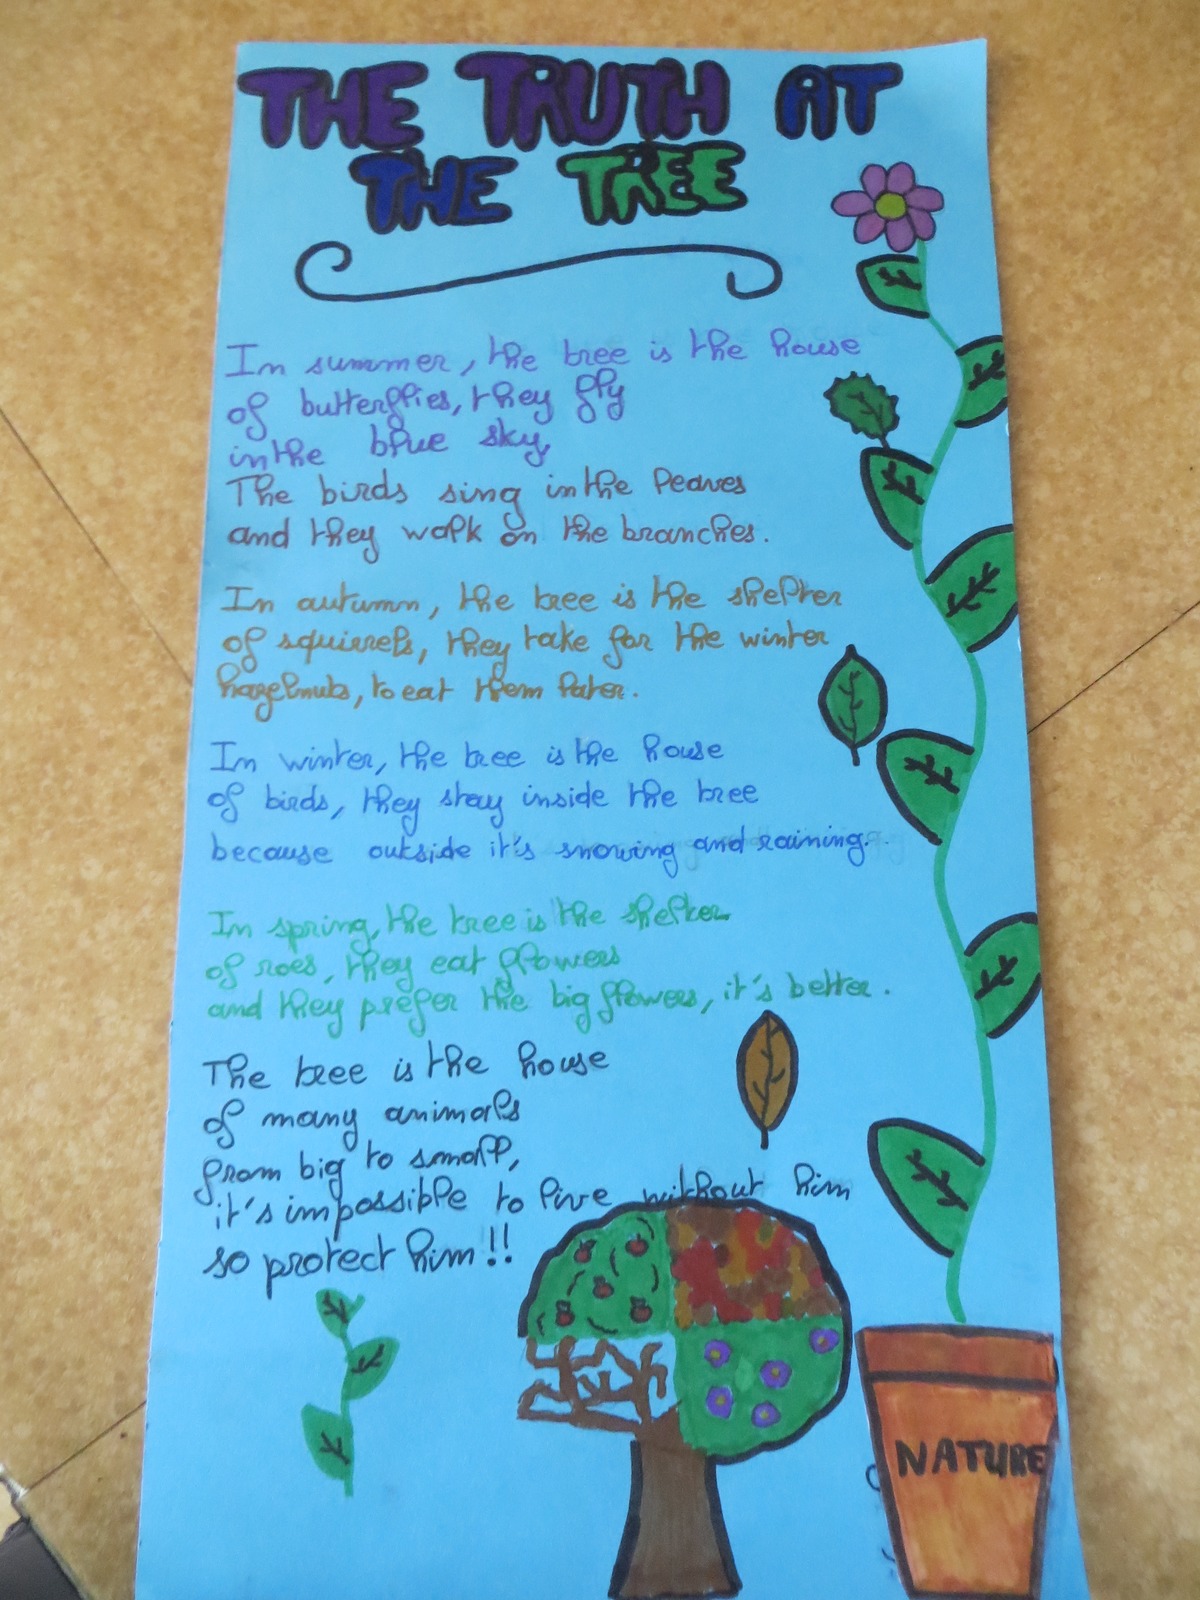 THE TRUTH AT
THE TREE
In summer, the tree is the house
of butterflies, they fly
in the blue sky,
The birds sing in the leaves
and they walk on the branches.
In autumn, the tree is the shelter
of squirrels, they take for the winter
hazelnuts, to eat them later.
In winter, the tree is the house
of birds, they stay inside the tree
because outside it's snowing and raining.
In spring, the tree is the shelter
of roes, they eat flowers
and they prefer the big flowers, it's better.
The tree is the house
of many animals
from big to small,
it's impossible to live without him
so protect him!!
NATURE